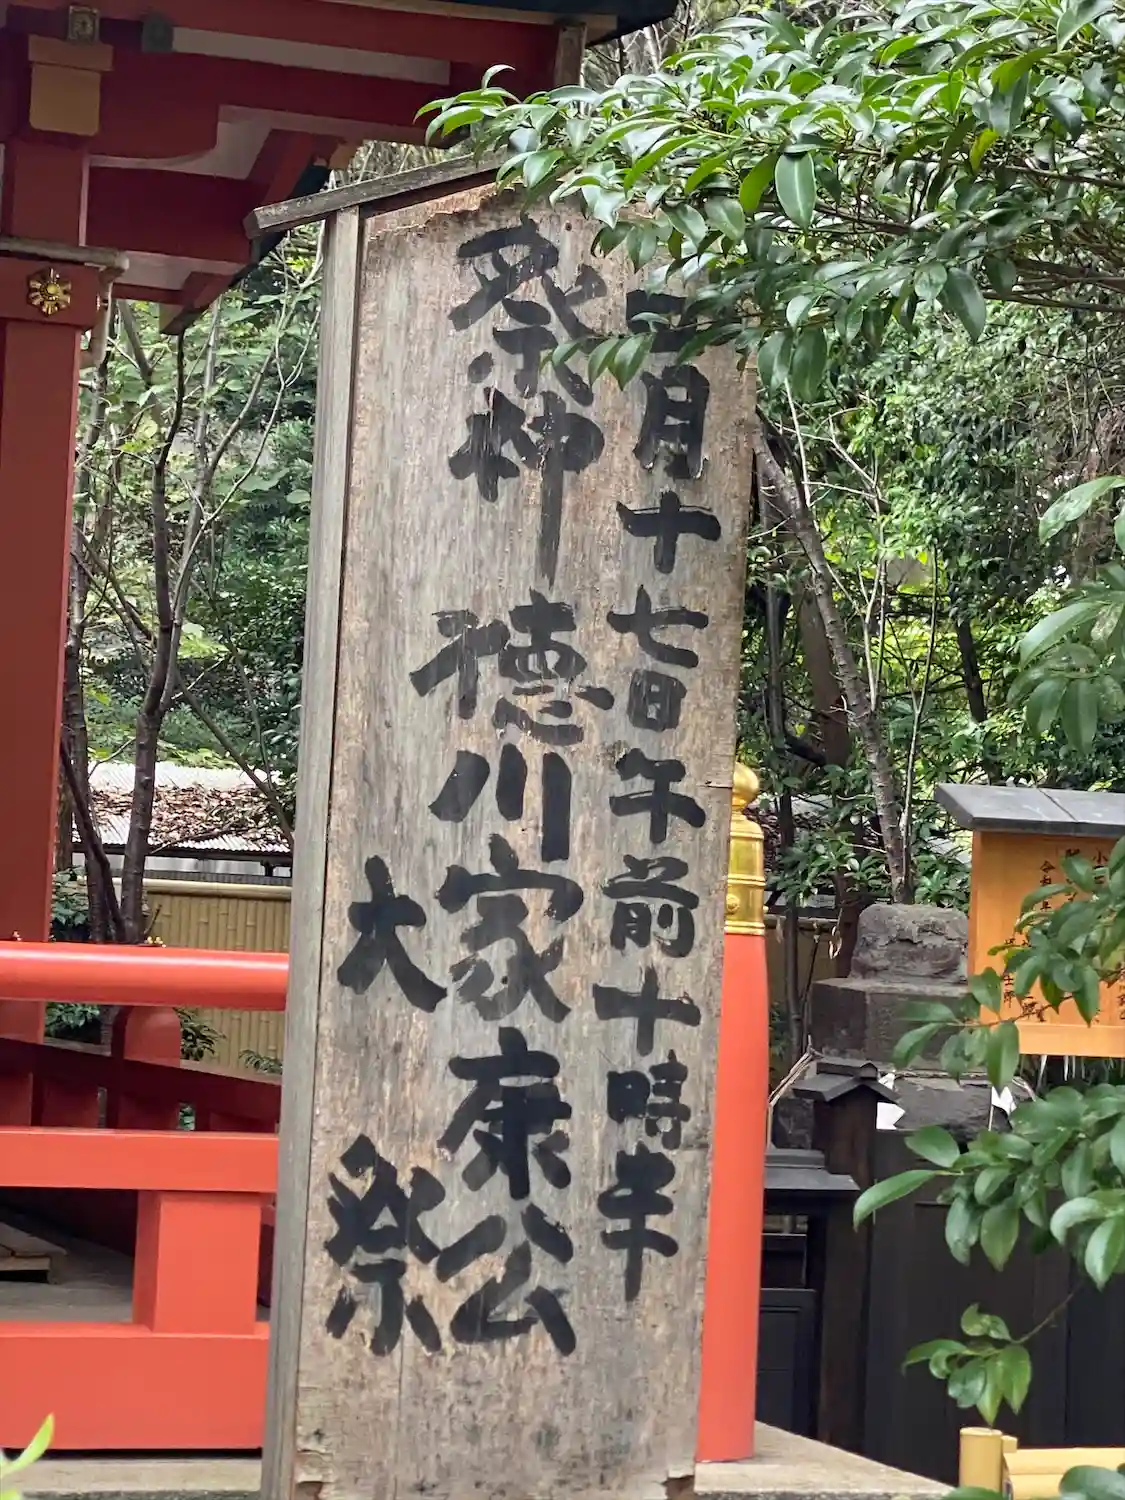 二月十七日午前十時半
祭神 徳川家康公
大祭